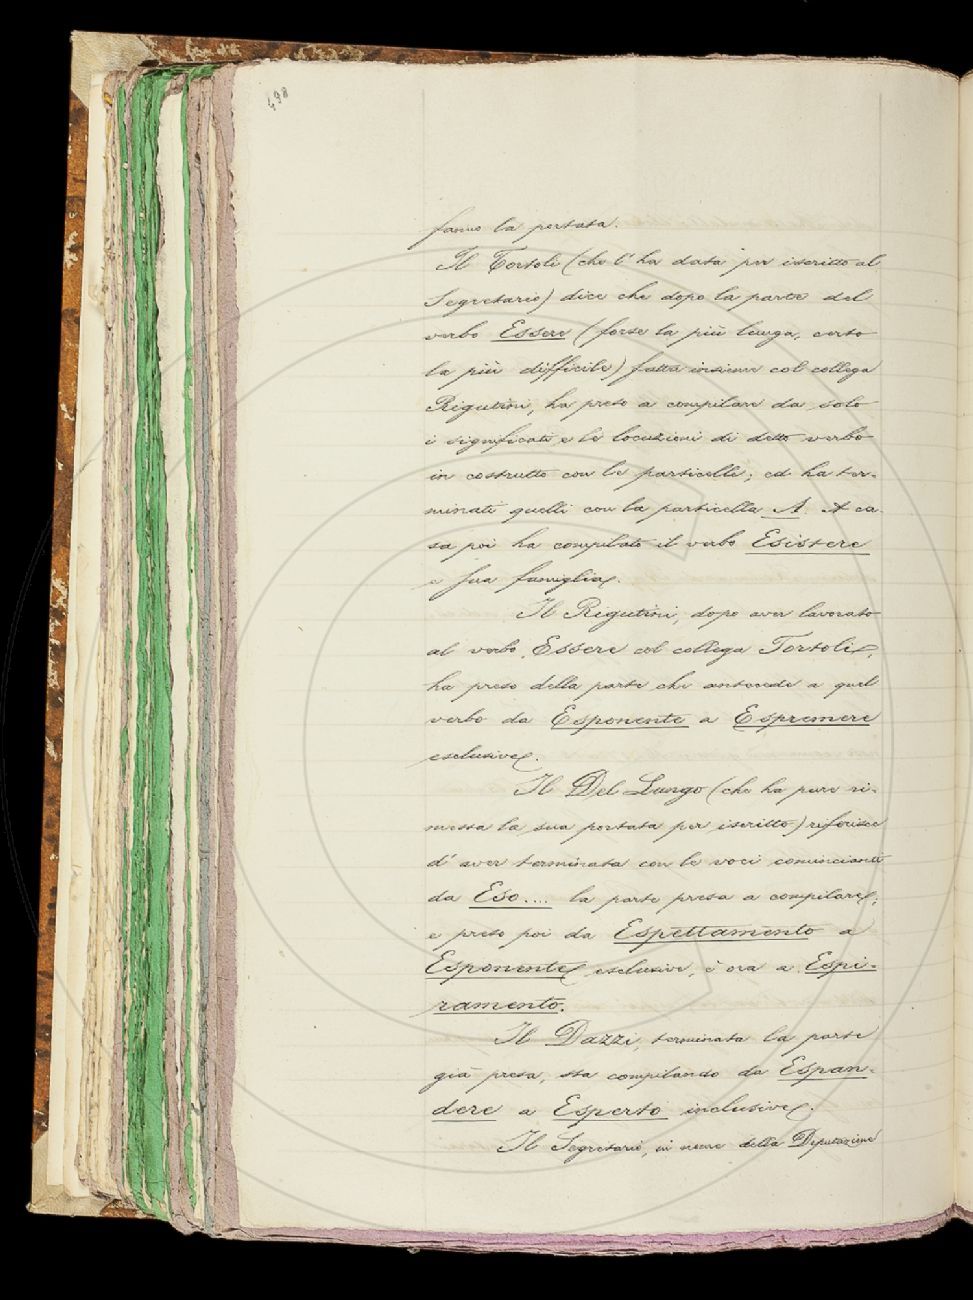 498
fanno la portata.
Il Tortoli (che l'ha data per iscritto al
Segretario) dice che dopo la parte del
verbo Essere (forse la più lunga, certo
la più difficile) fatta insieme col collega
Rigutini, ha preso a compilare da solo
i significati e le locuzioni di detto verbo
in costrutto con le particelle; ed ha ter-
minati quelli con la particella A. A ca
sa poi ha compilato il verbo Esistere
e sua famiglia.
Il Rigutini, dopo aver lavorato
al verbo Essere col collega Tortoli,
ha preso della parte che antecede a quel
verbo da Esponente a Espremere
esclusive.
Il Del Lungo (che ha pure ri-
messa la sua portata per iscritto) riferisce
d'aver terminata con le voci comincianti
da Eso.... la parte presa a compilare;
e preso poi da Espettamento a
Esponente esclusive, è ora a Espi-
ramento.
Il Dazzi, terminata la parte
già presa, sta compilando da Espan-
dere a Esperto inclusive.
Il Segretario, in nome della Deputazione